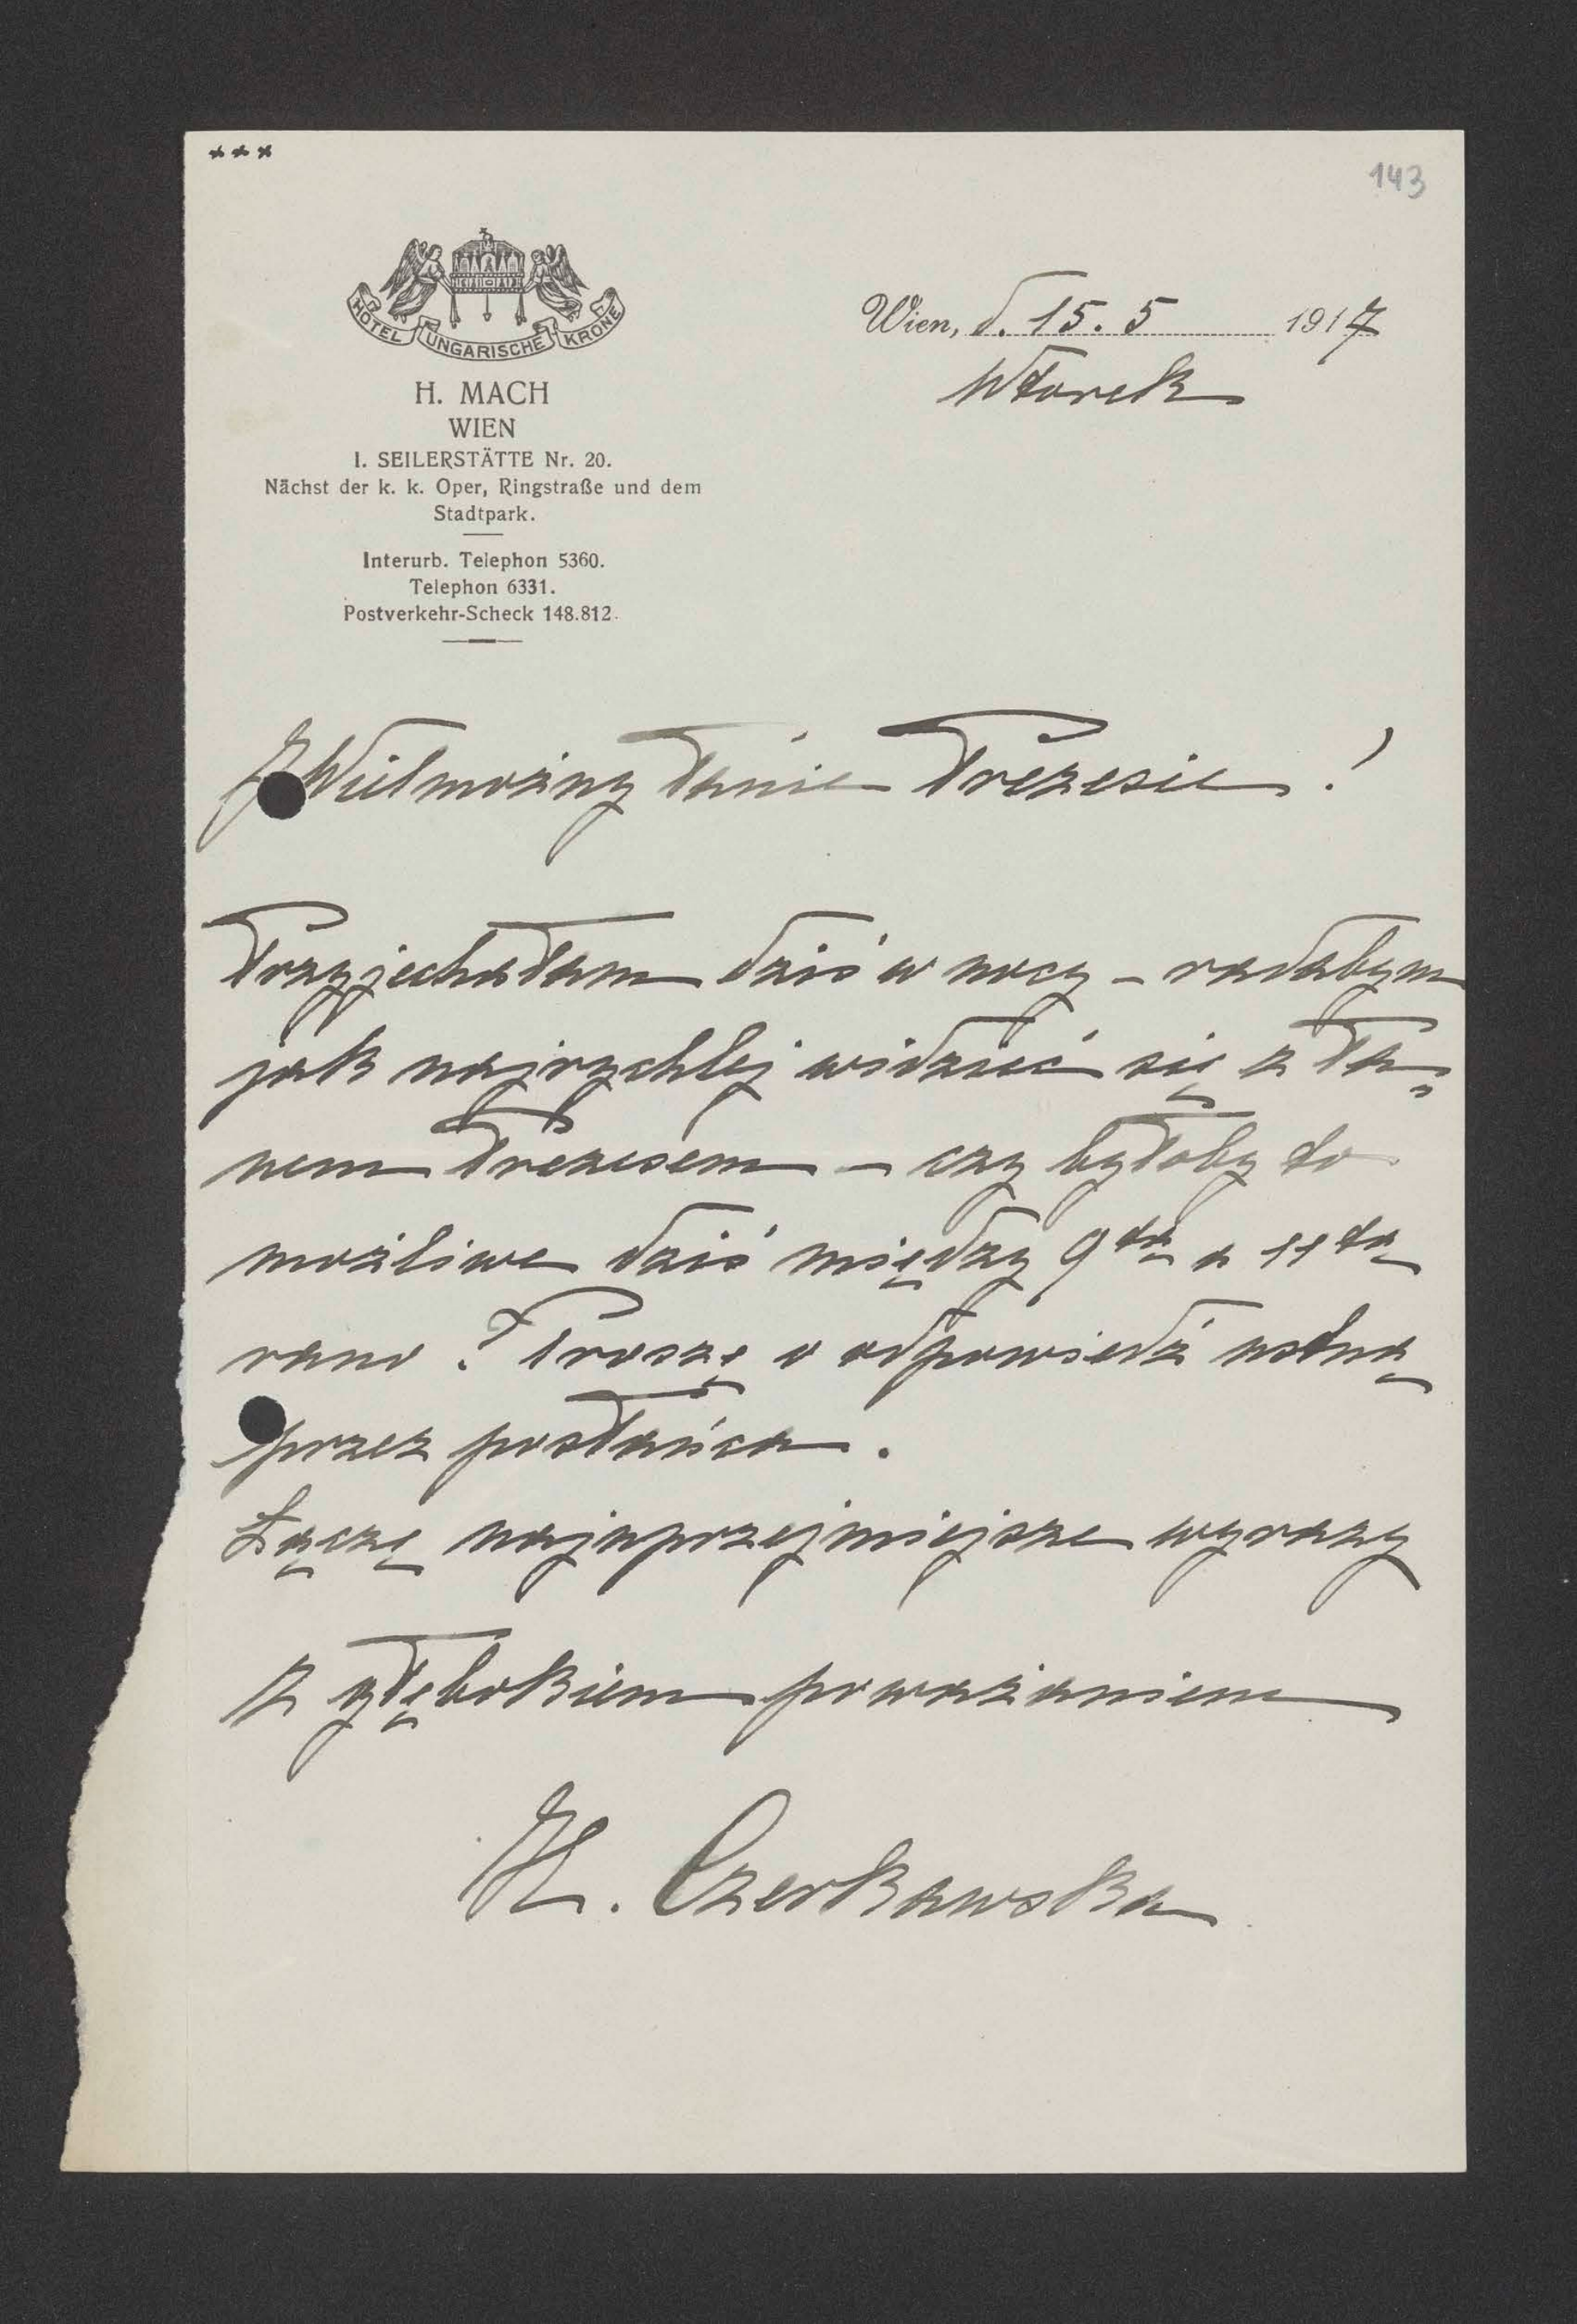 ***
143
HOTEL UNGARISCHE KRONE
H. MACH
WIEN
I. SEILERSTÄTTE Nr. 20.
Nächst der k. k. Oper, Ringstraße und dem
Stadtpark.
Interurb. Telephon 5360.
Telephon 6331.
Postverkehr-Scheck 148.812.
Wien, d. 15. 5 1917
Wtorek
JWielmożny Panie Prezesie!
Przyjechałam dziś w nocy – radabym
jak najrychlej widzieć się z Pa-
nem Prezesem – czy byłoby to
możliwe dziś między 9tą a 11tą
rano? Proszę o odpowiedź ustną
przez posłańca.
Łączę najuprzejmiejsze wyrazy
z głębokiem poważaniem
H. Czerkawska